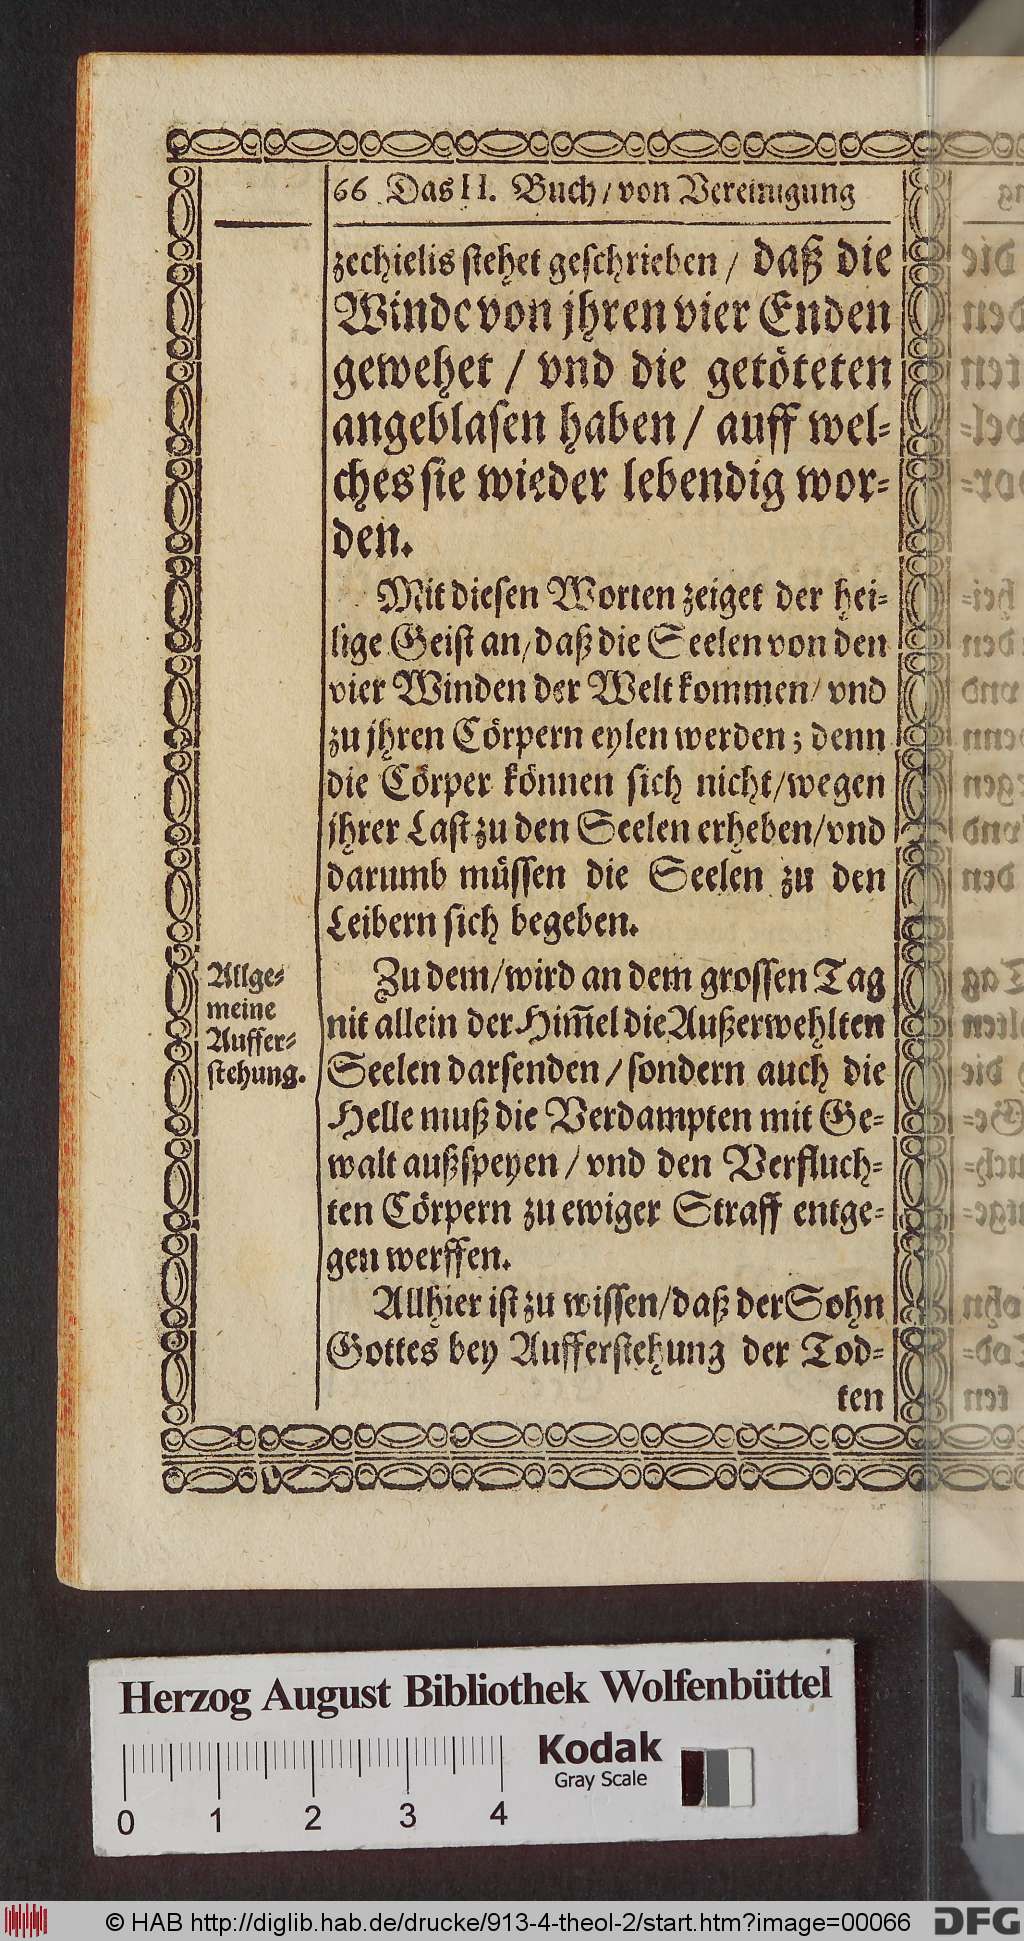 66 Das II. Buch / von Vereinigung
zechielis stehet geschrieben / daß die
Winde von jhren vier Enden
gewehet / vnd die getöteten
angeblasen haben / auff wel-
ches sie wieder lebendig wor-
den.
Mit diesen Worten zeiget der hei-
lige Geist an / daß die Seelen von den
vier Winden der Welt kommen / vnd
zu jhren Cörpern eylen werden; denn
die Cörper können sich nicht / wegen
jhrer Last zu den Seelen erheben / vnd
darumb müssen die Seelen zu den
Leibern sich begeben.
Allge-
meine
Auffer-
stehung.
Zu dem / wird an dem grossen Tag
nit allein der Him̅el die Außerwehlten
Seelen darsenden / sondern auch die
Helle muß die Verdampten mit Ge-
walt außspeyen / vnd den Verfluch-
ten Cörpern zu ewiger Straff entge-
gen werffen.
Allhier ist zu wissen / daß der Sohn
Gottes bey Aufferstehung der Tod-
ten
Herzog August Bibliothek Wolfenbüttel
Kodak
Gray Scale
0 1 2 3 4
© HAB http://diglib.hab.de/drucke/913-4-theol-2/start.htm?image=00066
DFG